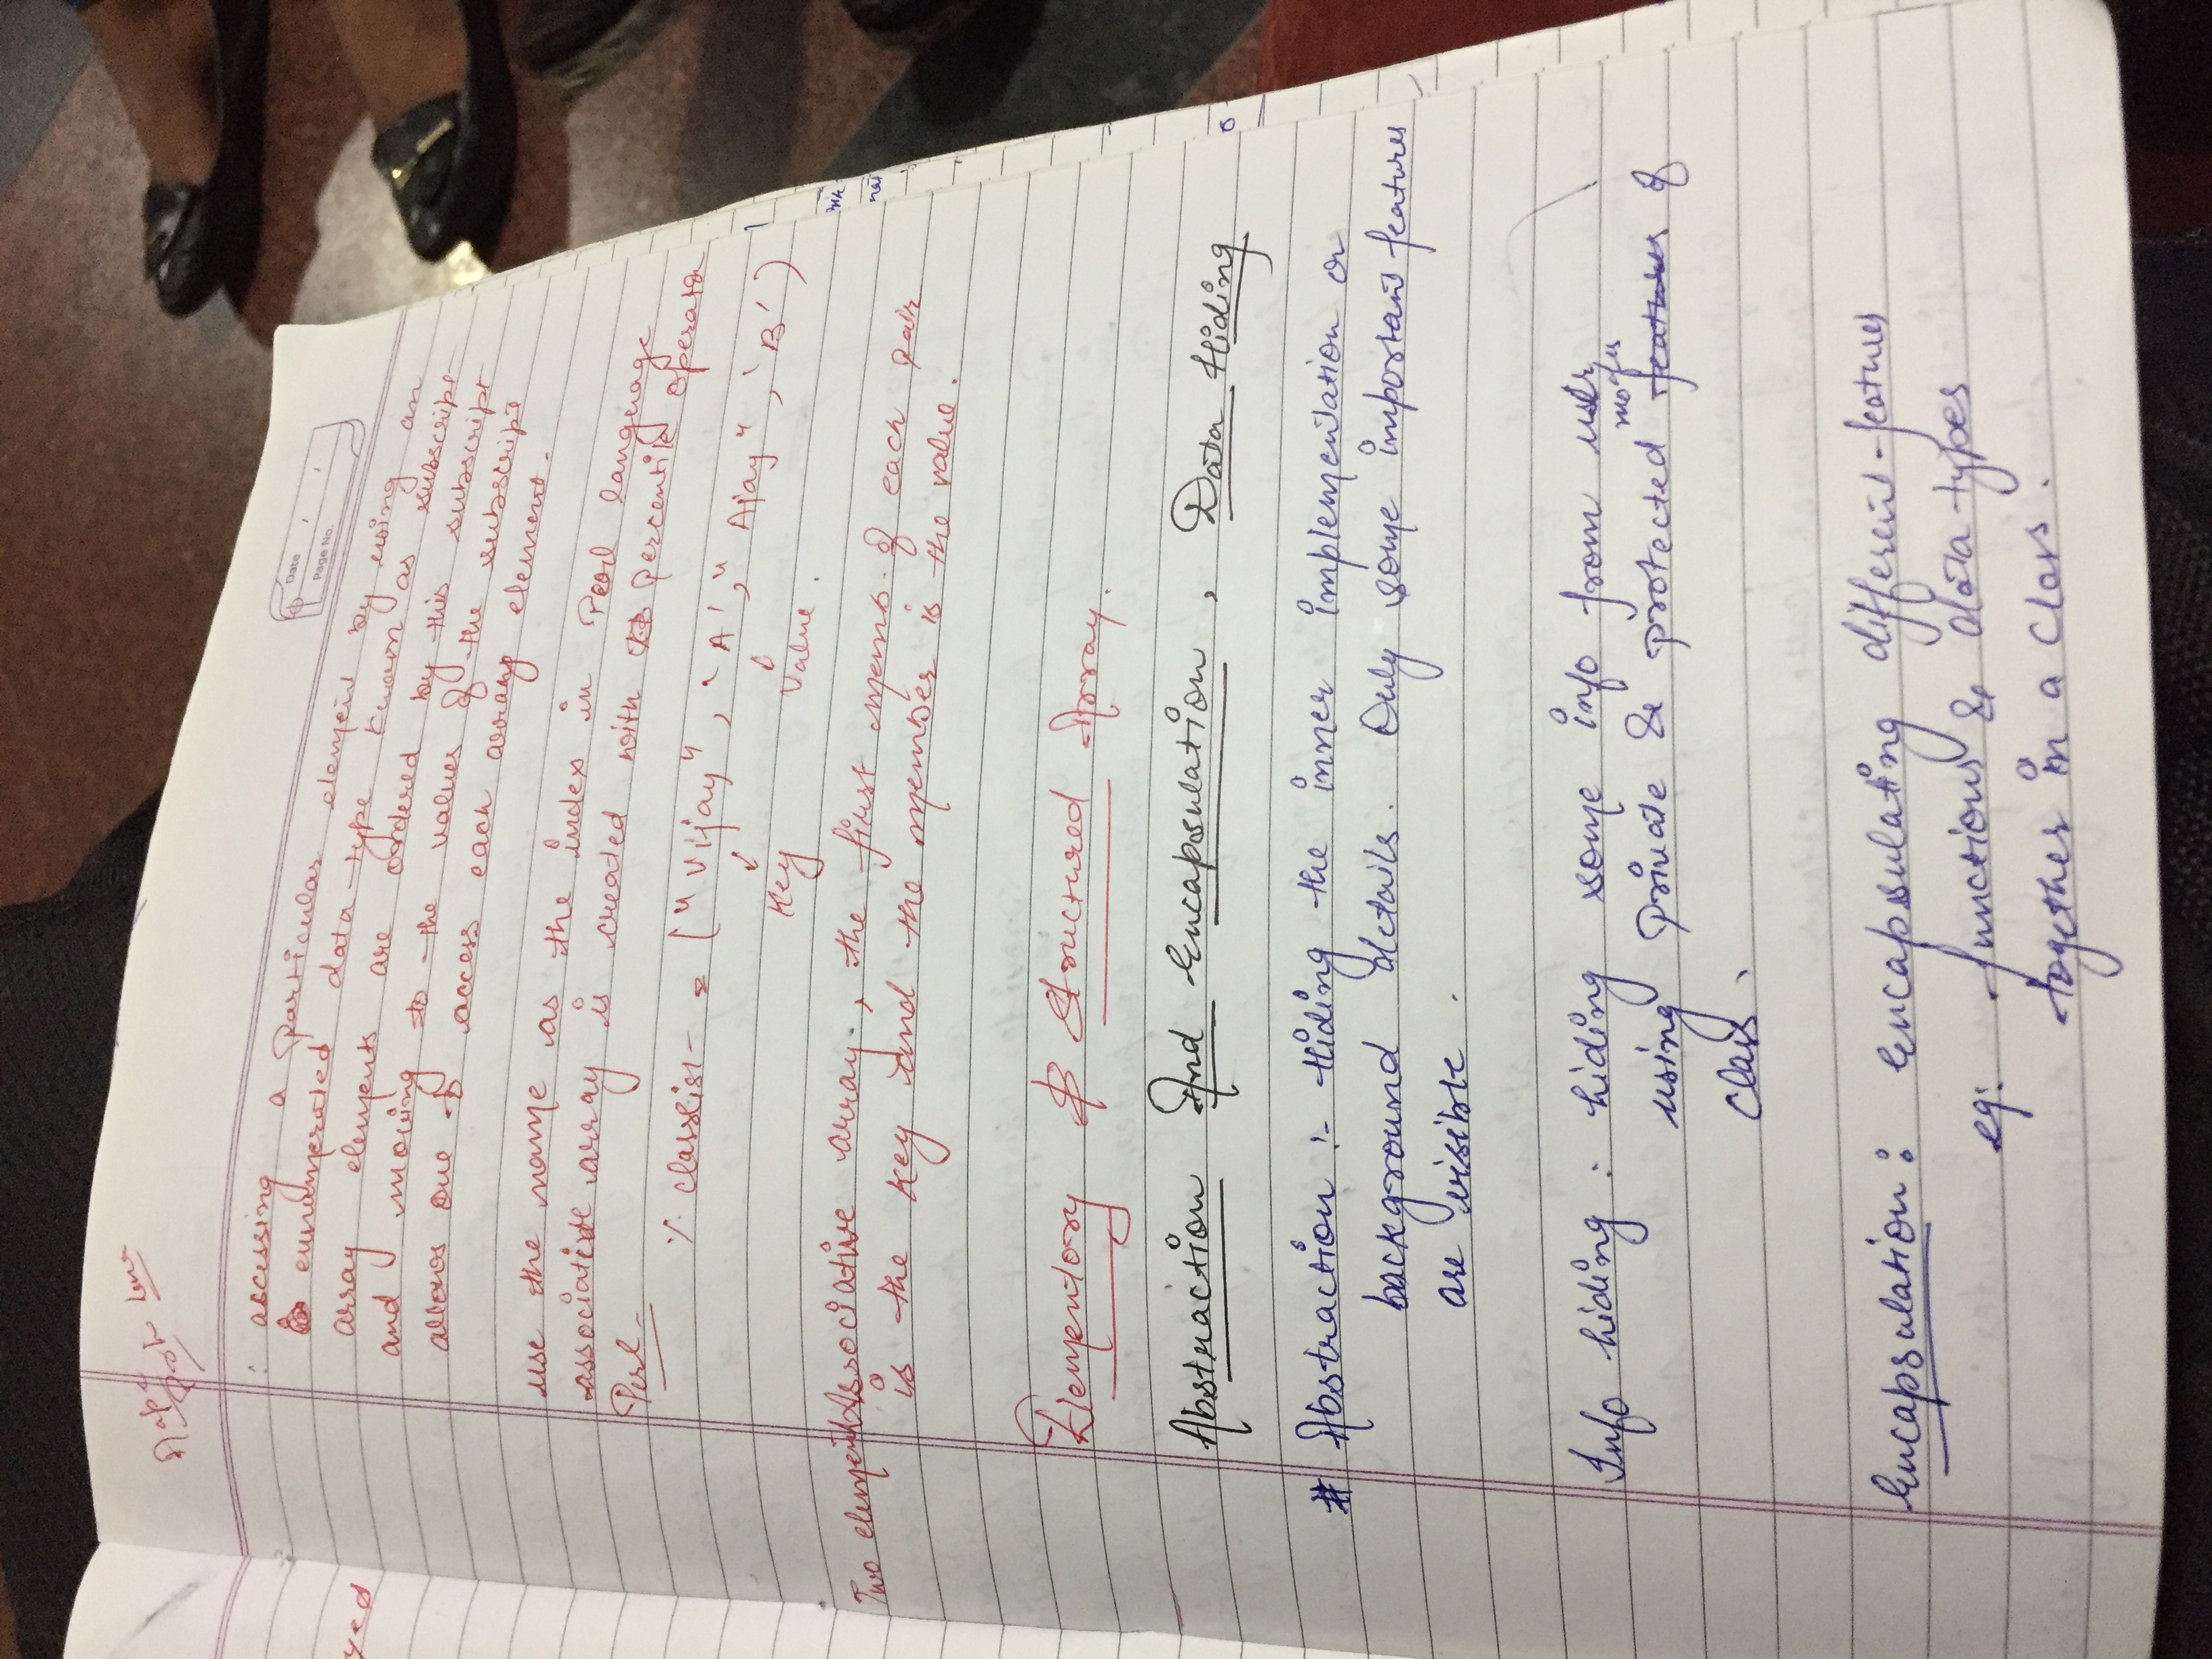 : accessing a particular element by using an
enumerated data type known as subscript
array elements are ordered by this subscript
and moving to the values of the subscript
allows one to access each array element.
Date
Page No.
yed
use the name as the index in Perl language
associative array is created with percentile operator
Perl -
% classlist = ["Vijay", 'A', "Ajay", 'B')
Key
Value.
Two element Associative array., the first memb. of each pair
is the key and the member is the value.
Elementory & Structured Array.
Abstraction And Encapsulation, Data Hiding
# Abstraction :- Hiding the inner implementation or
background details. Only some important features
are visible.
Info hiding : hiding some info from user
modes
using Private & protected features of
class.
Encapsulation : Encapsulating different features
eg: functions & data types
together in a class.